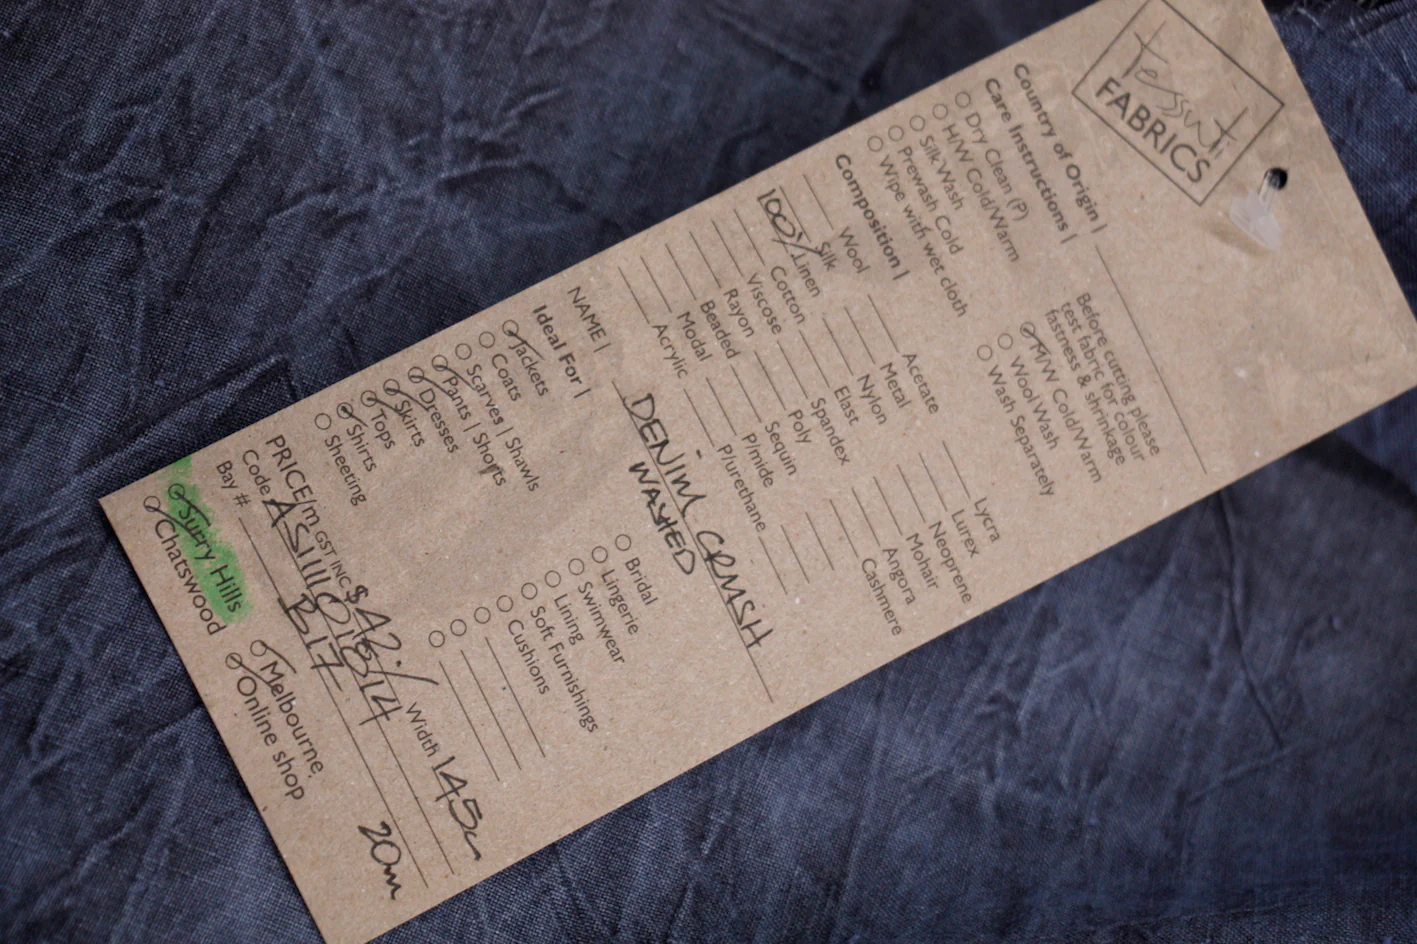 Tessuti
FABRICS
Country of Origin |
Care Instructions |
Dry Clean (P)
H/W Cold/Warm
Silk Wash
Prewash Cold
Wipe with wet cloth
Before cutting please
test fabric for colour
fastness & shrinkage
M/W Cold/Warm
Wool Wash
Wash Separately
Composition |
Wool
Silk
100% Linen
Cotton
Viscose
Rayon
Beaded
Modal
Acrylic
Acetate
Metal
Nylon
Elast
Spandex
Poly
Sequin
P/mide
P/urethane
Lycra
Lurex
Neoprene
Mohair
Angora
Cashmere
NAME | DENIM CRUSH
WASHED
Ideal For |
Jackets
Coats
Scarves | Shawls
Pants | Shorts
Dresses
Skirts
Tops
Shirts
Sheeting
Bridal
Lingerie
Swimwear
Lining
Soft Furnishings
Cushions
PRICE/m GST INC $42.- Width 145c
Code
Bay # B17
Surry Hills
Chatswood
Melbourne
Online shop
20m